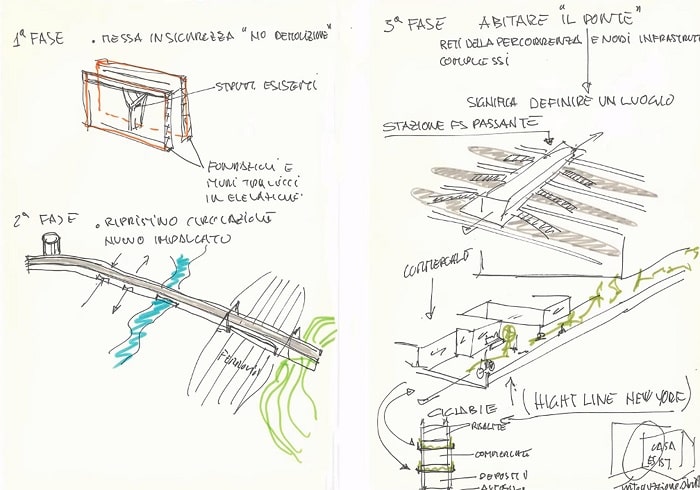 1ª FASE
• MESSA IN SICUREZZA "NO DEMOLIZIONE"
STRUTT. ESISTENTI
FONDAZIONI E
MURI TRALICCI
IN ELEVAZIONE
2ª FASE
• RIPRISTINO CIRCOLAZIONE
NUOVO IMPALCATO
FERROVIA
3ª FASE ABITARE "IL PONTE"
RETI DELLA PERCORRENZA E NODI INFRASTRUT
COMPLESSI
SIGNIFICA DEFINIRE UN LUOGO
STAZIONE FS PASSANTE
COMMERCIALE
(HIGHT LINE NEW YORK)
CICLABILE
VIABILITÀ
COMMERCIALE
DEPOSITI
CASA
ESIST.